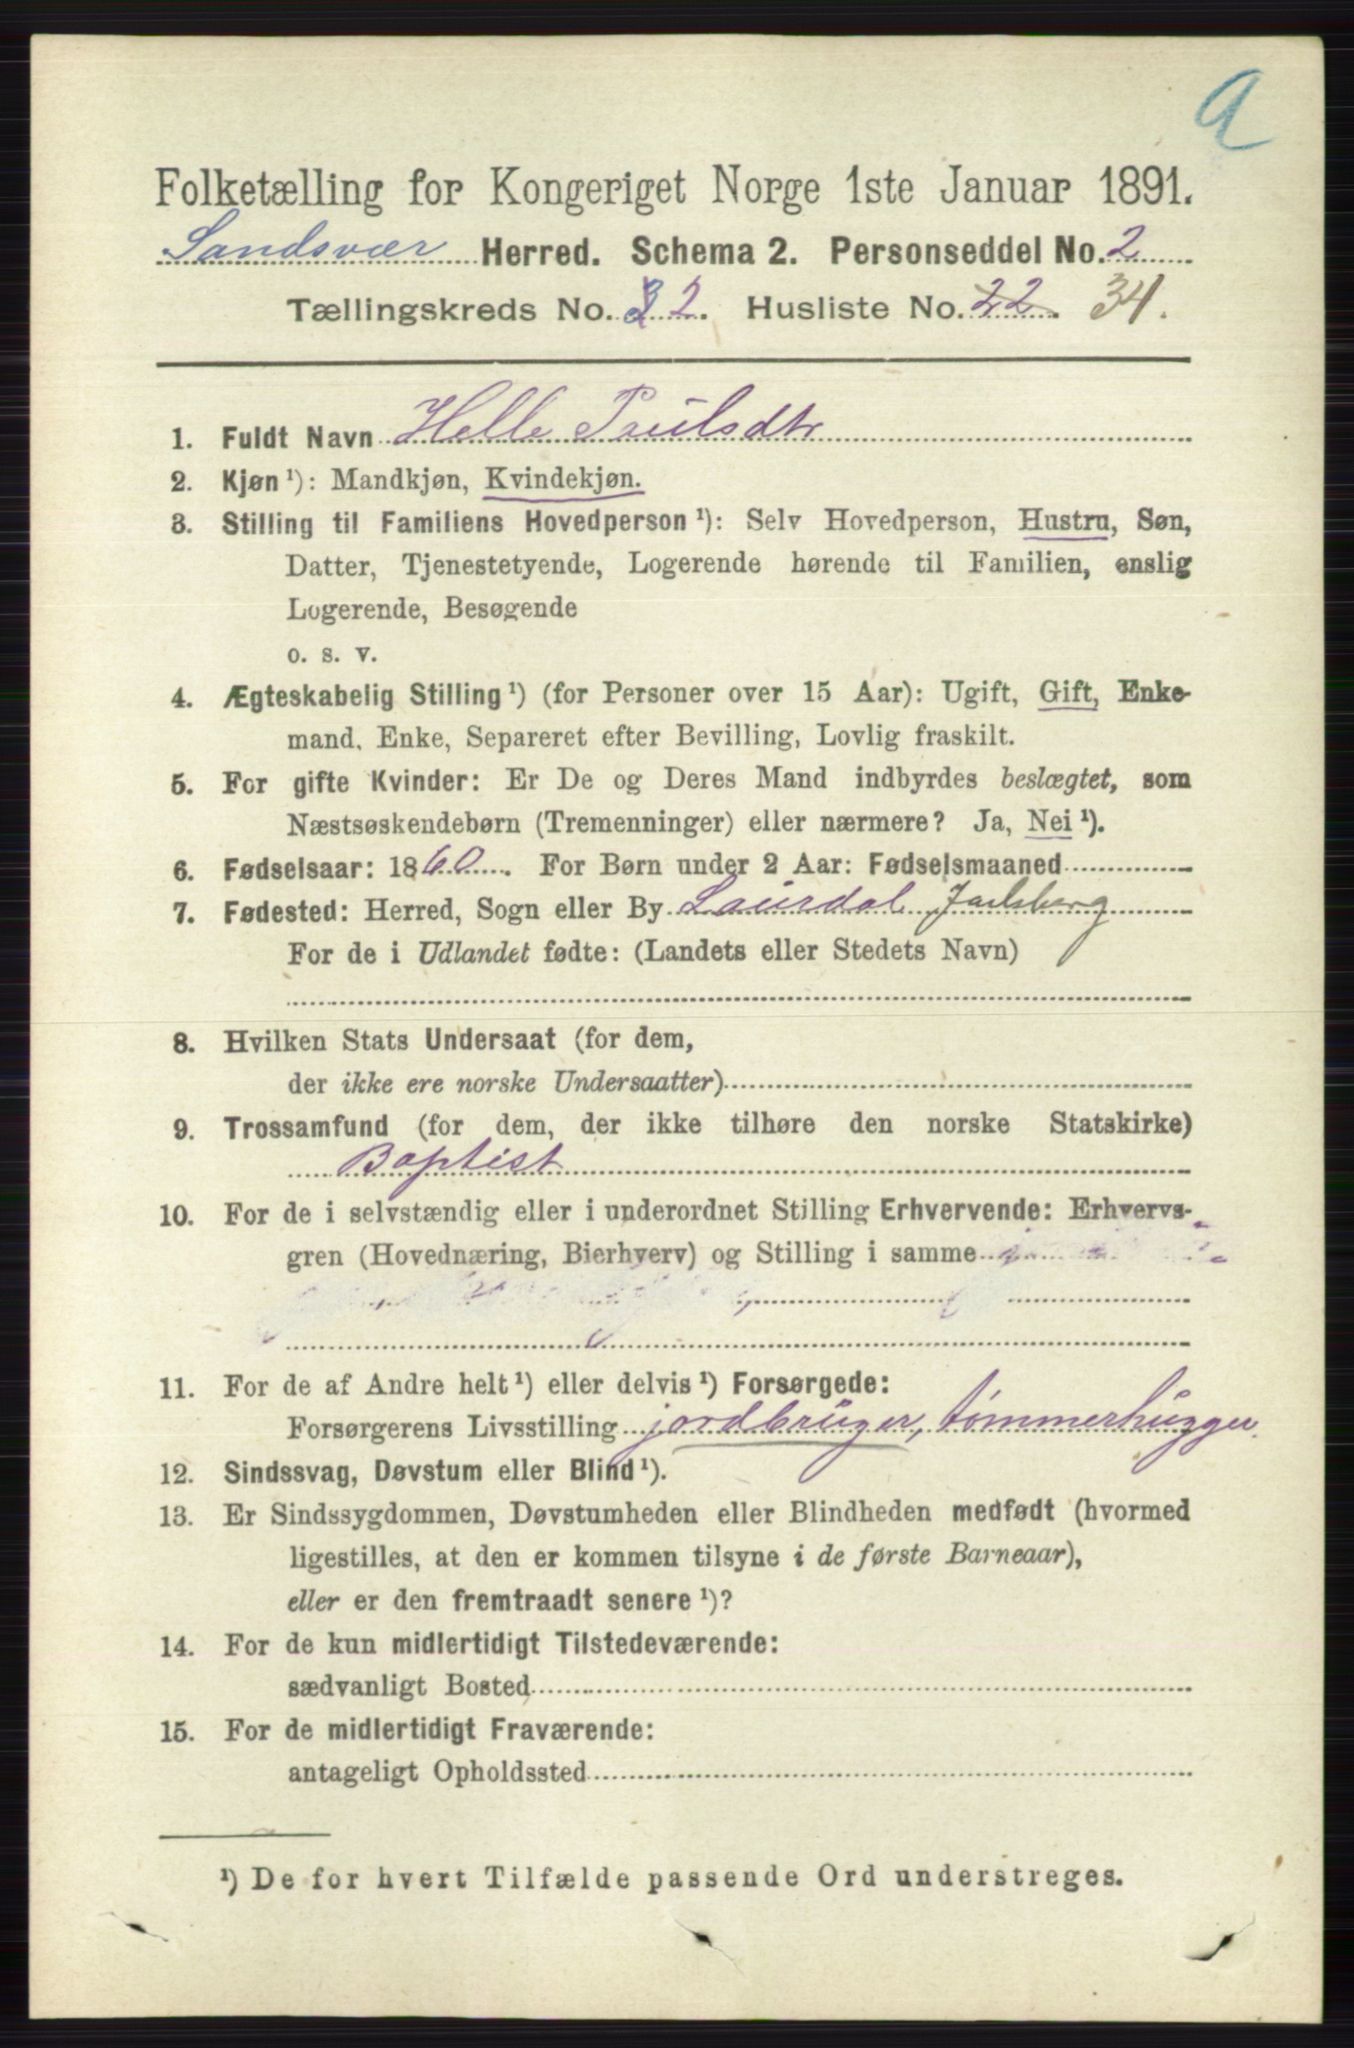 a
Folketælling for Kongeriget Norge 1ste Januar 1891.
Sandsvær Herred. Schema 2. Personseddel No. 2
Tællingskreds No. 2. Husliste No. 22. 34.
1. Fuldt Navn Helle Paulsdtr
2. Kjøn ¹): Mandkjøn, Kvindekjøn.
3. Stilling til Familiens Hovedperson ¹): Selv Hovedperson, Hustru, Søn,
Datter, Tjenestetyende, Logerende hørende til Familien, enslig
Logerende, Besøgende
o. s. v.
4. Ægteskabelig Stilling ¹) (for Personer over 15 Aar): Ugift, Gift, Enke-
mand, Enke, Separeret efter Bevilling, Lovlig fraskilt.
5. For gifte Kvinder: Er De og Deres Mand indbyrdes beslægtet, som
Næstsøskendebørn (Tremenninger) eller nærmere? Ja, Nei ¹).
6. Fødselsaar: 1860. For Børn under 2 Aar: Fødselsmaaned
7. Fødested: Herred, Sogn eller By Laurdal Jarlsberg
For de i Udlandet fødte: (Landets eller Stedets Navn)
8. Hvilken Stats Undersaat (for dem,
der ikke ere norske Undersaatter)
9. Trossamfund (for dem, der ikke tilhøre den norske Statskirke)
Baptist
10. For de i selvstændig eller i underordnet Stilling Erhvervende: Erhvervs-
gren (Hovednæring, Bierhverv) og Stilling i samme
11. For de af Andre helt ¹) eller delvis ¹) Forsørgede:
Forsørgerens Livsstilling jordbruger, tømmerhugger.
12. Sindssvag, Døvstum eller Blind ¹).
13. Er Sindssygdommen, Døvstumheden eller Blindheden medfødt (hvormed
ligestilles, at den er kommen tilsyne i de første Barneaar),
eller er den fremtraadt senere ¹)?
14. For de kun midlertidigt Tilstedeværende:
sædvanligt Bosted
15. For de midlertidigt Fraværende:
antageligt Opholdssted
¹) De for hvert Tilfælde passende Ord understreges.